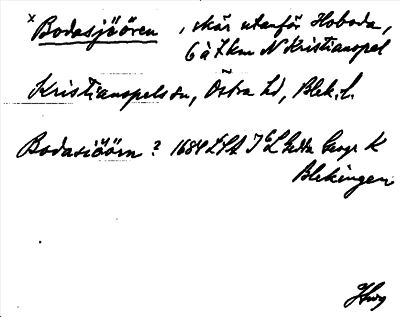 x Bodasjöören, skär utanför Hoboda,
6 à 7 km N Kristianopel
Kristianopels sn, Östra hd, Blek. l.
Bodasiöörn ? 1684 Geogr K
Blekingen